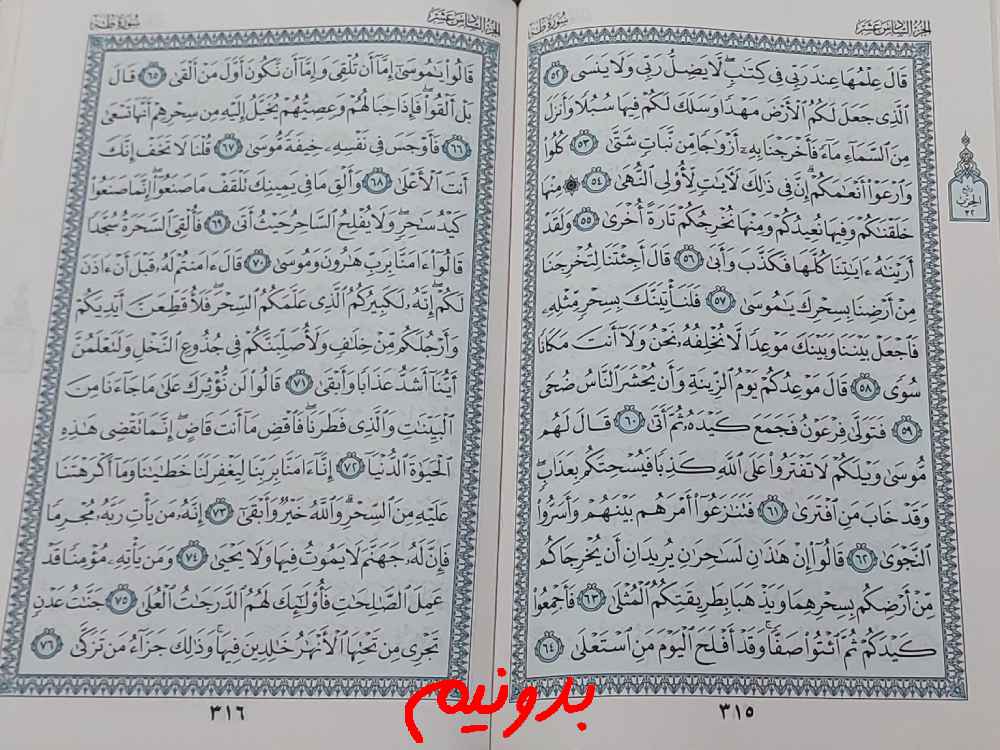 الجزء السادس عشر
سورة طه
قَالَ عِلْمُهَا عِندَ رَبِّي فِي كِتَٰبٍ ۖ لَّا يَضِلُّ رَبِّي وَلَا يَنسَى ٥٢
ٱلَّذِي جَعَلَ لَكُمُ ٱلْأَرْضَ مَهْدًا وَسَلَكَ لَكُمْ فِيهَا سُبُلًا وَأَنزَلَ
مِنَ ٱلسَّمَآءِ مَآءً فَأَخْرَجْنَا بِهِۦٓ أَزْوَٰجًا مِّن نَّبَاتٍ شَتَّىٰ ٥٣ كُلُوا۟
وَٱرْعَوْا۟ أَنْعَٰمَكُمْ ۗ إِنَّ فِي ذَٰلِكَ لَءَايَٰتٍ لِّأُو۟لِي ٱلنُّهَىٰ ٥٤ ۞ مِنْهَا
خَلَقْنَٰكُمْ وَفِيهَا نُعِيدُكُمْ وَمِنْهَا نُخْرِجُكُمْ تَارَةً أُخْرَىٰ ٥٥ وَلَقَدْ
أَرَيْنَٰهُ ءَايَٰتِنَا كُلَّهَا فَكَذَّبَ وَأَبَىٰ ٥٦ قَالَ أَجِئْتَنَا لِتُخْرِجَنَا
مِنْ أَرْضِنَا بِسِحْرِكَ يَٰمُوسَىٰ ٥٧ فَلَنَأْتِيَنَّكَ بِسِحْرٍ مِّثْلِهِۦ
فَٱجْعَلْ بَيْنَنَا وَبَيْنَكَ مَوْعِدًا لَّا نُخْلِفُهُۥ نَحْنُ وَلَآ أَنتَ مَكَانًا
سُوًى ٥٨ قَالَ مَوْعِدُكُمْ يَوْمُ ٱلزِّينَةِ وَأَن يُحْشَرَ ٱلنَّاسُ ضُحًى
٥٩ فَتَوَلَّىٰ فِرْعَوْنُ فَجَمَعَ كَيْدَهُۥ ثُمَّ أَتَىٰ ٦٠ قَالَ لَهُم
مُّوسَىٰ وَيْلَكُمْ لَا تَفْتَرُوا۟ عَلَى ٱللَّهِ كَذِبًا فَيُسْحِتَكُم بِعَذَابٍ ۖ
وَقَدْ خَابَ مَنِ ٱفْتَرَىٰ ٦١ فَتَنَٰزَعُوٓا۟ أَمْرَهُم بَيْنَهُمْ وَأَسَرُّوا۟
ٱلنَّجْوَىٰ ٦٢ قَالُوٓا۟ إِنْ هَٰذَٰنِ لَسَٰحِرَٰنِ يُرِيدَانِ أَن يُخْرِجَاكُم
مِّنْ أَرْضِكُم بِسِحْرِهِمَا وَيَذْهَبَا بِطَرِيقَتِكُمُ ٱلْمُثْلَىٰ ٦٣ فَأَجْمِعُوا۟
كَيْدَكُمْ ثُمَّ ٱئْتُوا۟ صَفًّا ۚ وَقَدْ أَفْلَحَ ٱلْيَوْمَ مَنِ ٱسْتَعْلَىٰ ٦٤
٣١٥
الجزء السادس عشر
سورة طه
قَالُوا۟ يَٰمُوسَىٰٓ إِمَّآ أَن تُلْقِيَ وَإِمَّآ أَن نَّكُونَ أَوَّلَ مَنْ أَلْقَىٰ ٦٥ قَالَ
بَلْ أَلْقُوا۟ ۖ فَإِذَا حِبَالُهُمْ وَعِصِيُّهُمْ يُخَيَّلُ إِلَيْهِ مِن سِحْرِهِمْ أَنَّهَا تَسْعَىٰ
٦٦ فَأَوْجَسَ فِي نَفْسِهِۦ خِيفَةً مُّوسَىٰ ٦٧ قُلْنَا لَا تَخَفْ إِنَّكَ
أَنتَ ٱلْأَعْلَىٰ ٦٨ وَأَلْقِ مَا فِي يَمِينِكَ تَلْقَفْ مَا صَنَعُوٓا۟ ۖ إِنَّمَا صَنَعُوا۟
كَيْدُ سَٰحِرٍ ۖ وَلَا يُفْلِحُ ٱلسَّاحِرُ حَيْثُ أَتَىٰ ٦٩ فَأُلْقِيَ ٱلسَّحَرَةُ سُجَّدًا
قَالُوٓا۟ ءَامَنَّا بِرَبِّ هَٰرُونَ وَمُوسَىٰ ٧٠ قَالَ ءَامَنتُمْ لَهُۥ قَبْلَ أَنْ ءَاذَنَ
لَكُمْ ۖ إِنَّهُۥ لَكَبِيرُكُمُ ٱلَّذِي عَلَّمَكُمُ ٱلسِّحْرَ ۖ فَلَأُقَطِّعَنَّ أَيْدِيَكُمْ
وَأَرْجُلَكُم مِّنْ خِلَٰفٍ وَلَأُصَلِّبَنَّكُمْ فِي جُذُوعِ ٱلنَّخْلِ وَلَتَعْلَمُنَّ
أَيُّنَآ أَشَدُّ عَذَابًا وَأَبْقَىٰ ٧١ قَالُوا۟ لَن نُّؤْثِرَكَ عَلَىٰ مَا جَآءَنَا مِنَ
ٱلْبَيِّنَٰتِ وَٱلَّذِي فَطَرَنَا ۖ فَٱقْضِ مَآ أَنتَ قَاضٍ ۖ إِنَّمَا تَقْضِي هَٰذِهِ
ٱلْحَيَوٰةَ ٱلدُّنْيَآ ٧٢ إِنَّآ ءَامَنَّا بِرَبِّنَا لِيَغْفِرَ لَنَا خَطَٰيَٰنَا وَمَآ أَكْرَهْتَنَا
عَلَيْهِ مِنَ ٱلسِّحْرِ ۗ وَٱللَّهُ خَيْرٌ وَأَبْقَىٰٓ ٧٣ إِنَّهُۥ مَن يَأْتِ رَبَّهُۥ مُجْرِمًا
فَإِنَّ لَهُۥ جَهَنَّمَ لَا يَمُوتُ فِيهَا وَلَا يَحْيَىٰ ٧٤ وَمَن يَأْتِهِۦ مُؤْمِنًا قَدْ
عَمِلَ ٱلصَّٰلِحَٰتِ فَأُو۟لَٰٓئِكَ لَهُمُ ٱلدَّرَجَٰتُ ٱلْعُلَىٰ ٧٥ جَنَّٰتُ عَدْنٍ
تَجْرِي مِن تَحْتِهَا ٱلْأَنْهَٰرُ خَٰلِدِينَ فِيهَا ۚ وَذَٰلِكَ جَزَآءُ مَن تَزَكَّىٰ ٧٦
٣١٦
بدونیم